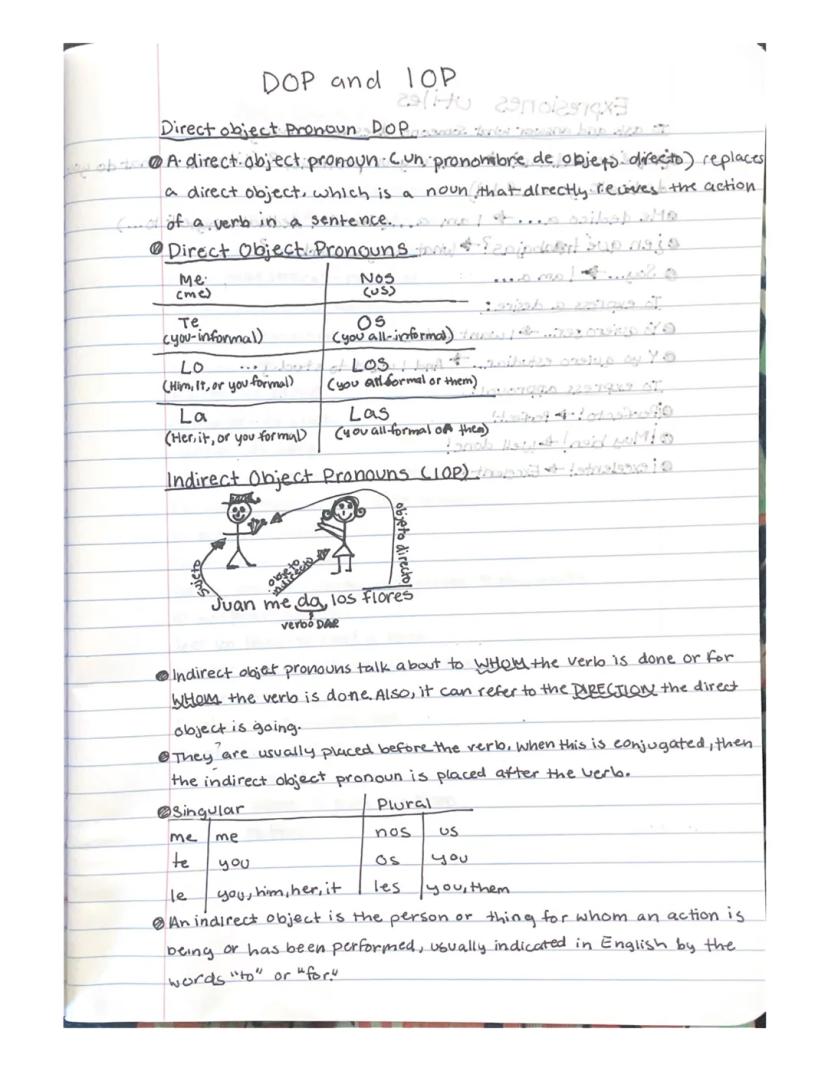 DOP and IOP
Expresiones utiles
Direct object Pronoun DOP
A direct object pronoun (un pronombre de objeto directo) replaces
a direct object, which is a noun that directly recives the action
of a verb in a sentence.
Direct Object Pronouns
Me Nos
(me) (us)
Te OS
(you-informal) (you all-informal)
Lo Los
(Him, It, or you formal) (you all formal or them)
La Las
(Her, it, or you formal) (you all-formal or them)
Indirect Object Pronouns (IOP)
Sujeto
objeto indirecto
objeto directo
Juan me da los flores
verbo DAR
Indirect objet pronouns talk about to WHOM the verb is done or for
WHOM the verb is done. Also, it can refer to the DIRECTION the direct
object is going.
They are usually placed before the verb, when this is conjugated, then
the indirect object pronoun is placed after the verb.
Singular Plural
me me nos us
te you os you
le you, him, her, it les you, them
An indirect object is the person or thing for whom an action is
being or has been performed, usually indicated in English by the
words "to" or "for."